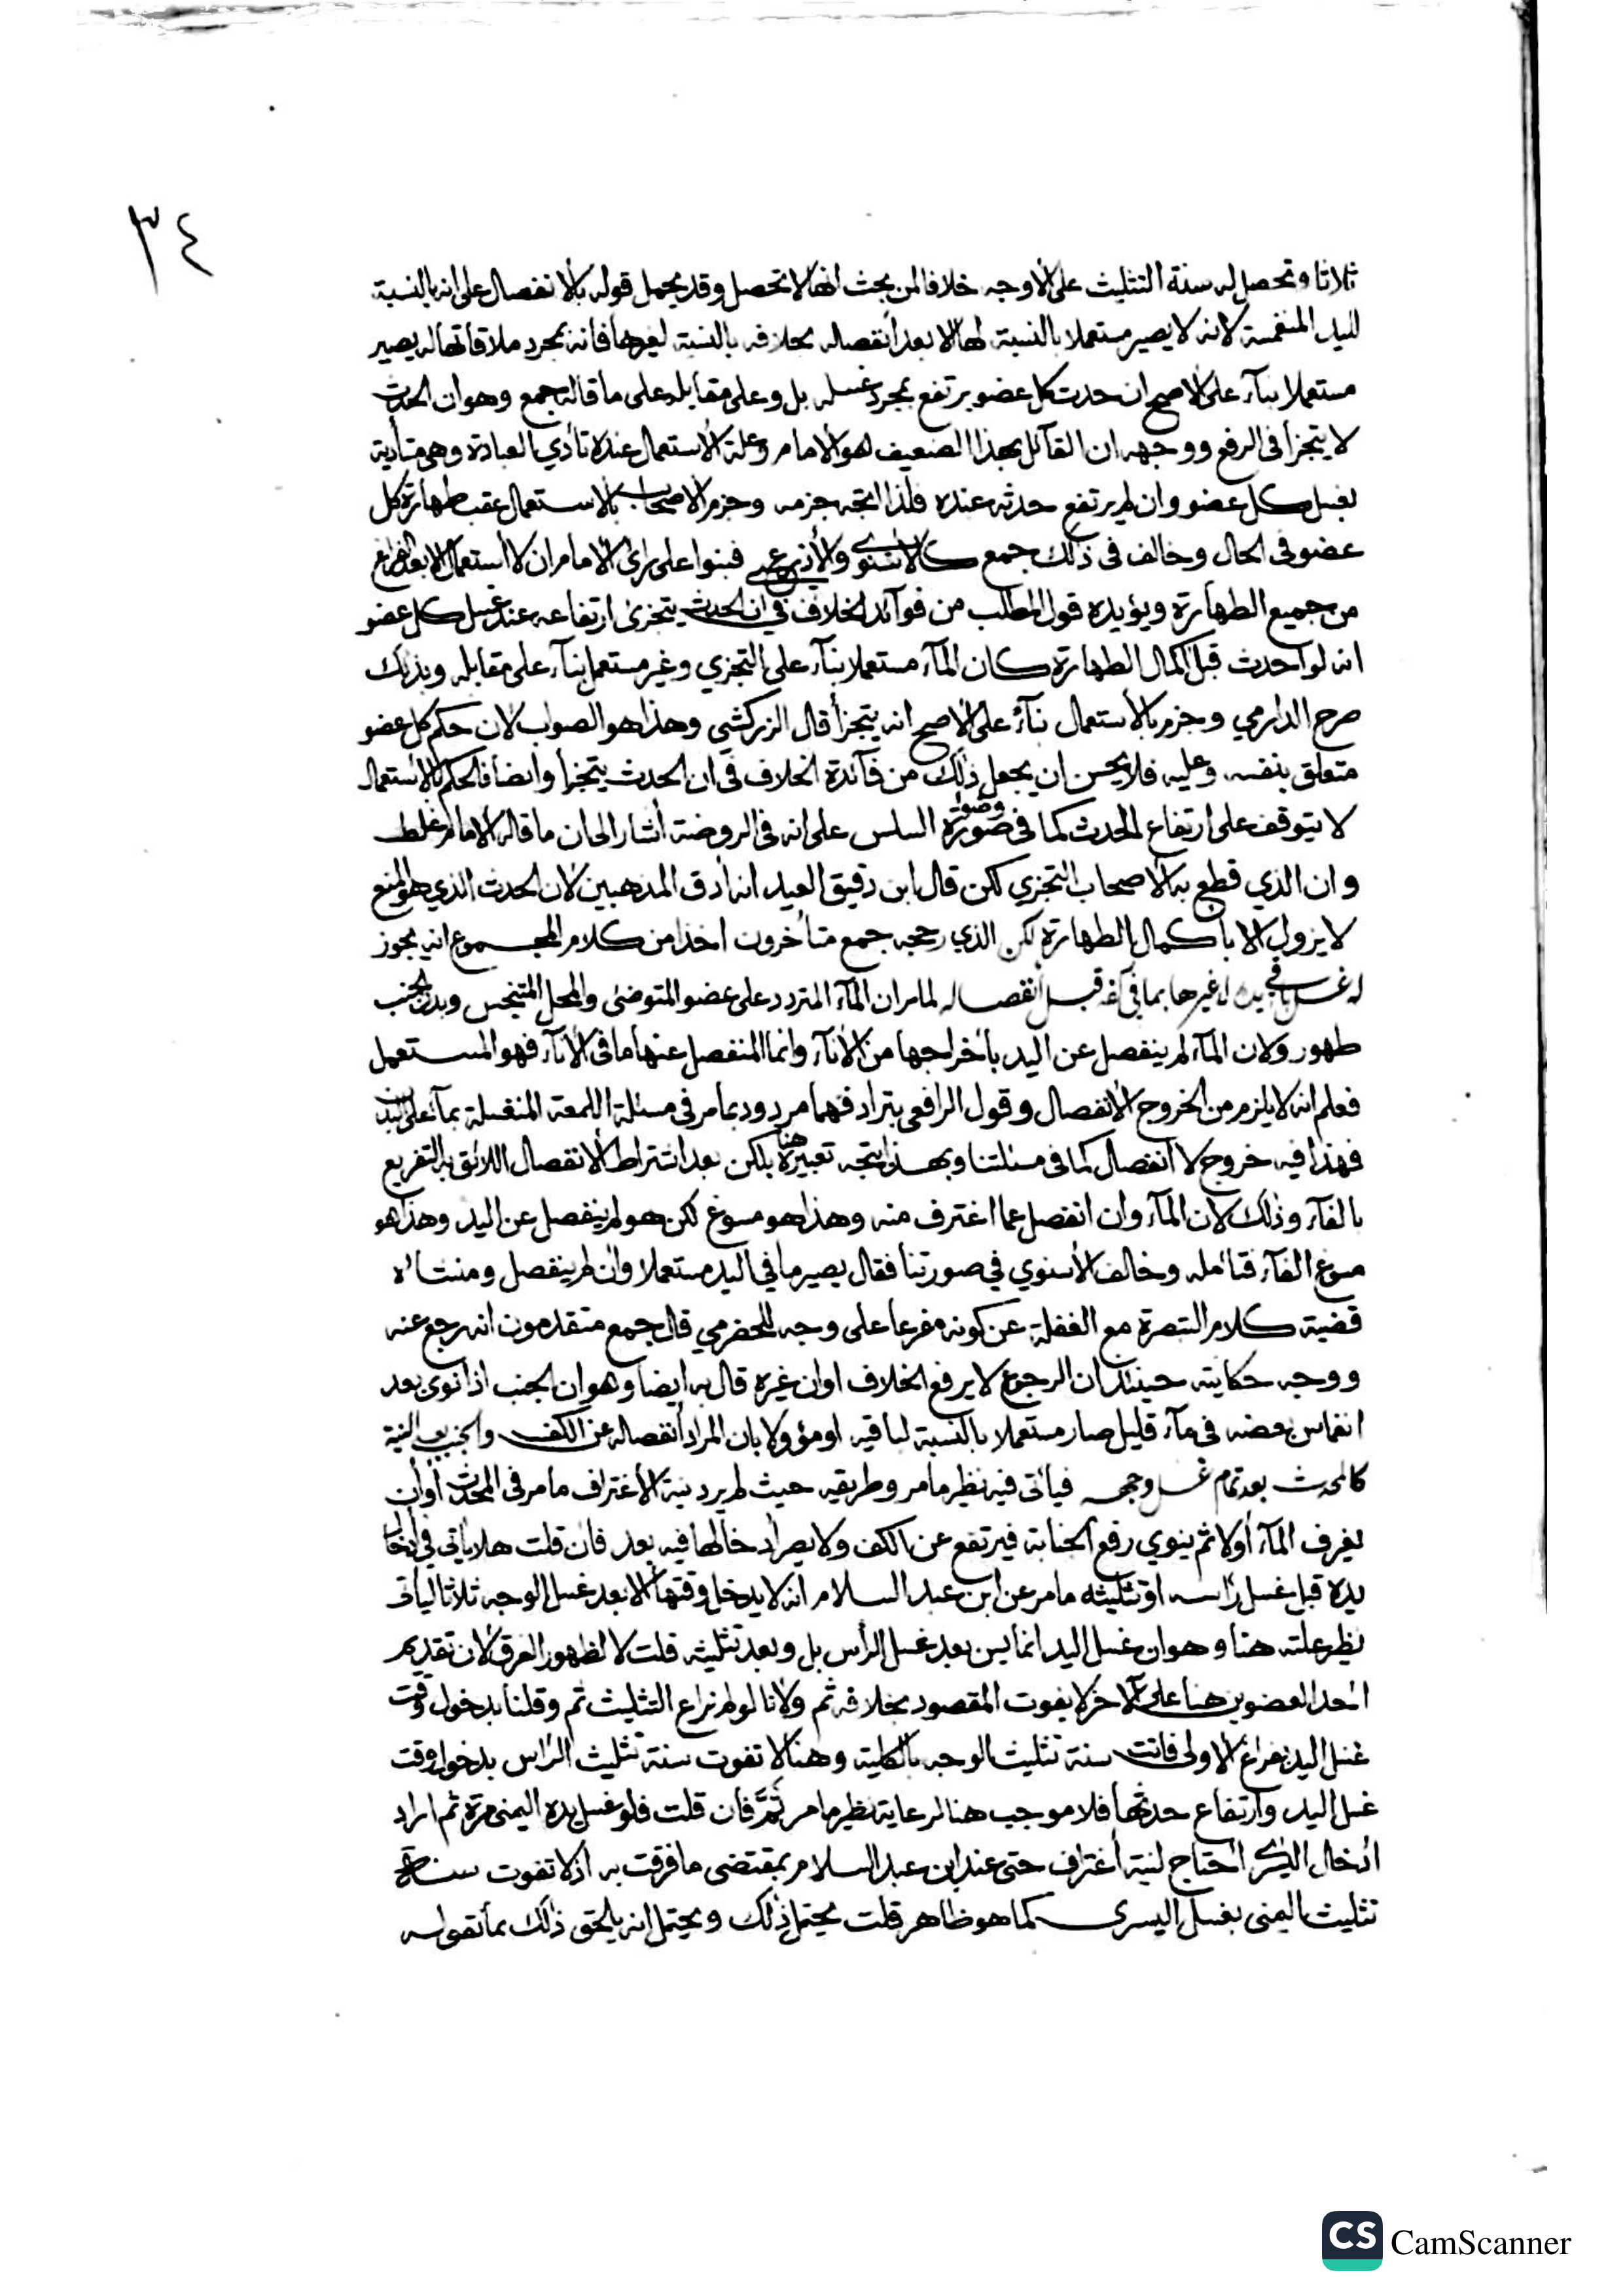 ٣٤
ثلاثا وتحصل له سنة التثليث على الاوجه خلافا لمن بحث انها لا تحصل وقد يحمل قوله بالانفصال على انه بالنسبة
لليد المنغمسة لانه لا يصير مستعملا بالنسبة لها الا بعد انفصاله بخلافه بالنسبة لغيرها فانه بمجرد ملاقاتها له يصير
مستعملا بنآء على الاصح ان حدث كل عضو يرتفع بمجرد غسله بل وعلى مقابله على ما قاله جمع وهو ان الحدث
لا يتجزأ في الرفع ووجهه ان القآئل بهذا الضعيف هو الامام وعلة الاستعمال عنده تأدي العبادة وهي متأدية
بغسل كل عضو وان لم يرتفع حدثه عنده فلذا اتجه جزمه وجزم الاصحاب بالاستعمال عقب طهارة كل
عضو في الحال وخالف في ذلك جمع كالاسنوي والأذرعي فبنوا على رأي الامام ان لا استعمال الا بعد الفراغ
من جميع الطهارة ويؤيده قول المطلب من فوآئد الخلاف في ان الحدث يتجزئ ارتفاعه عند غسل كل عضو
انه لو احدث قبل اكمال الطهارة كان المآء مستعملا بنآء على التجزي وغير مستعمل بنآء على مقابله وبذلك
صرح الدارمي وجزم بالأستعمال بنآء على الاصح انه يتجزأ قال الزركشي وهذا هو الصواب لان حكم كل عضو
متعلق بنفسه وعليه فلا يحسن ان يجعل ذلك من فآئدة الخلاف في ان الحدث يتجزأ وايضا فالحكم بالاستعمال
لا يتوقف على ارتفاع الحدث كما في صورة وضوء السلس على انه في الروضة أشار الى ان ما قاله الامام غلط
وان الذي قطع به الاصحاب التجزي لكن قال ابن دقيق العيد انه أدق المذهبين لان الحدث الذي هو المنع
لا يزول الا بأكمال الطهارة لكن الذي رجحه جمع متأخرون اخذا من كلام المجموع انه يجوز
له غسل باقي يده لا غيرها بما في كفه قبل انفصاله لما مر ان المآء المتردد على عضو المتوضئ والمحل المتنجس وبدن الجنب
طهور ولان المآء لم ينفصل عن اليد بأخراجها من الأنآء وانما المنفصل عنها ما في الأنآء فهو المستعمل
فعلم انه لا يلزم من الخروج الأنفصال وقول الرافعي بترادفهما مردود بما مر في مسئلة اللمعة المنغسلة بمآء على البدن
فهذا فيه خروج لا انفصال كما في مسئلتنا وبهذا يتجه تعبيره هنا بلكن بعد اشتراط الانفصال اللائق به التفريع
بالفآء وذلك لان المآء وان انفصل عما اغترف منه وهذا هو مسوغ لكن هو لم ينفصل عن اليد وهذا هو
مسوغ الفآء فتأمله وخالف الأسنوي في صورتنا فقال يصير ما في اليد مستعملا وان لم ينفصل ومنشأه
قضية كلام التبصرة مع الغفلة عن كونه مفرعا على وجه للخضرمي قال جمع متقدمون انه رجع عنه
ووجه حكايته حينئذ ان الرجوع لا يرفع الخلاف او ان غيره قال به ايضا وهو ان الجنب اذا نوى بعد
انغماس بعضه في مآء قليل صار مستعملا بالنسبة لباقيه او مؤولا بان المراد أنفصاله عن الكف والجنب بعد النية
كالمحدث بعد تمام غسل وجهه فيأتي فيه نظير ما مر وطريقه حيث لم يرد نية الأغتراف ما مر في المحدث أو أن
يغرف المآء أولا ثم ينوي رفع الجنابة فيرتفع عن الكف ولا يضر ادخالها فيه بعد فان قلت هلا يأتي في ادخال
يده قبل غسل رأسه او تثليثه ما مر عن ابن عبد السلام انه لا يدخل وقتها الا بعد غسل الوجه ثلاثا ليأتي
نظير علته هنا وهو ان غسل اليد انما يسن بعد غسل الرأس بل وبعد تثليثه قلت لا لظهور الفرق لان تقديم
احد العضوين هنا على الآخر لا يفوت المقصود بخلافه ثم ولانا لو لم نراع التثليث ثم وقلنا بدخول وقت
غسل اليد بفراغ الاولى فاتت سنة تثليث الوجه بالكلية وهنا لا تفوت سنة تثليث الرأس بدخول وقت
غسل اليد وارتفاع حدثها فلا موجب هنا لرعاية نظير ما مر ثَمَّ فان قلت فلو غسل يده اليمنى مرة ثم اراد
ادخال اليسرى احتاج لنية أغتراف حتى عند ابن عبد السلام بمقتضى ما فرقت به اذ لا تفوت سنة
تثليث اليمنى بغسل اليسرى كما هو ظاهر قلت يحتمل ذلك ويحتمل انه يلحق ذلك بما تقوله
CS CamScanner